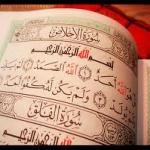 سُورَةُ الإِخْلَاصِ
بِسْمِ اللَّهِ الرَّحْمَٰنِ الرَّحِيمِ
قُلْ هُوَ اللَّهُ أَحَدٌ ۝ اللَّهُ الصَّمَدُ ۝ لَمْ يَلِدْ
وَلَمْ يُولَدْ ۝ وَلَمْ يَكُن لَّهُ كُفُوًا أَحَدٌ
سُورَةُ الفَلَقِ
بِسْمِ اللَّهِ الرَّحْمَٰنِ الرَّحِيمِ